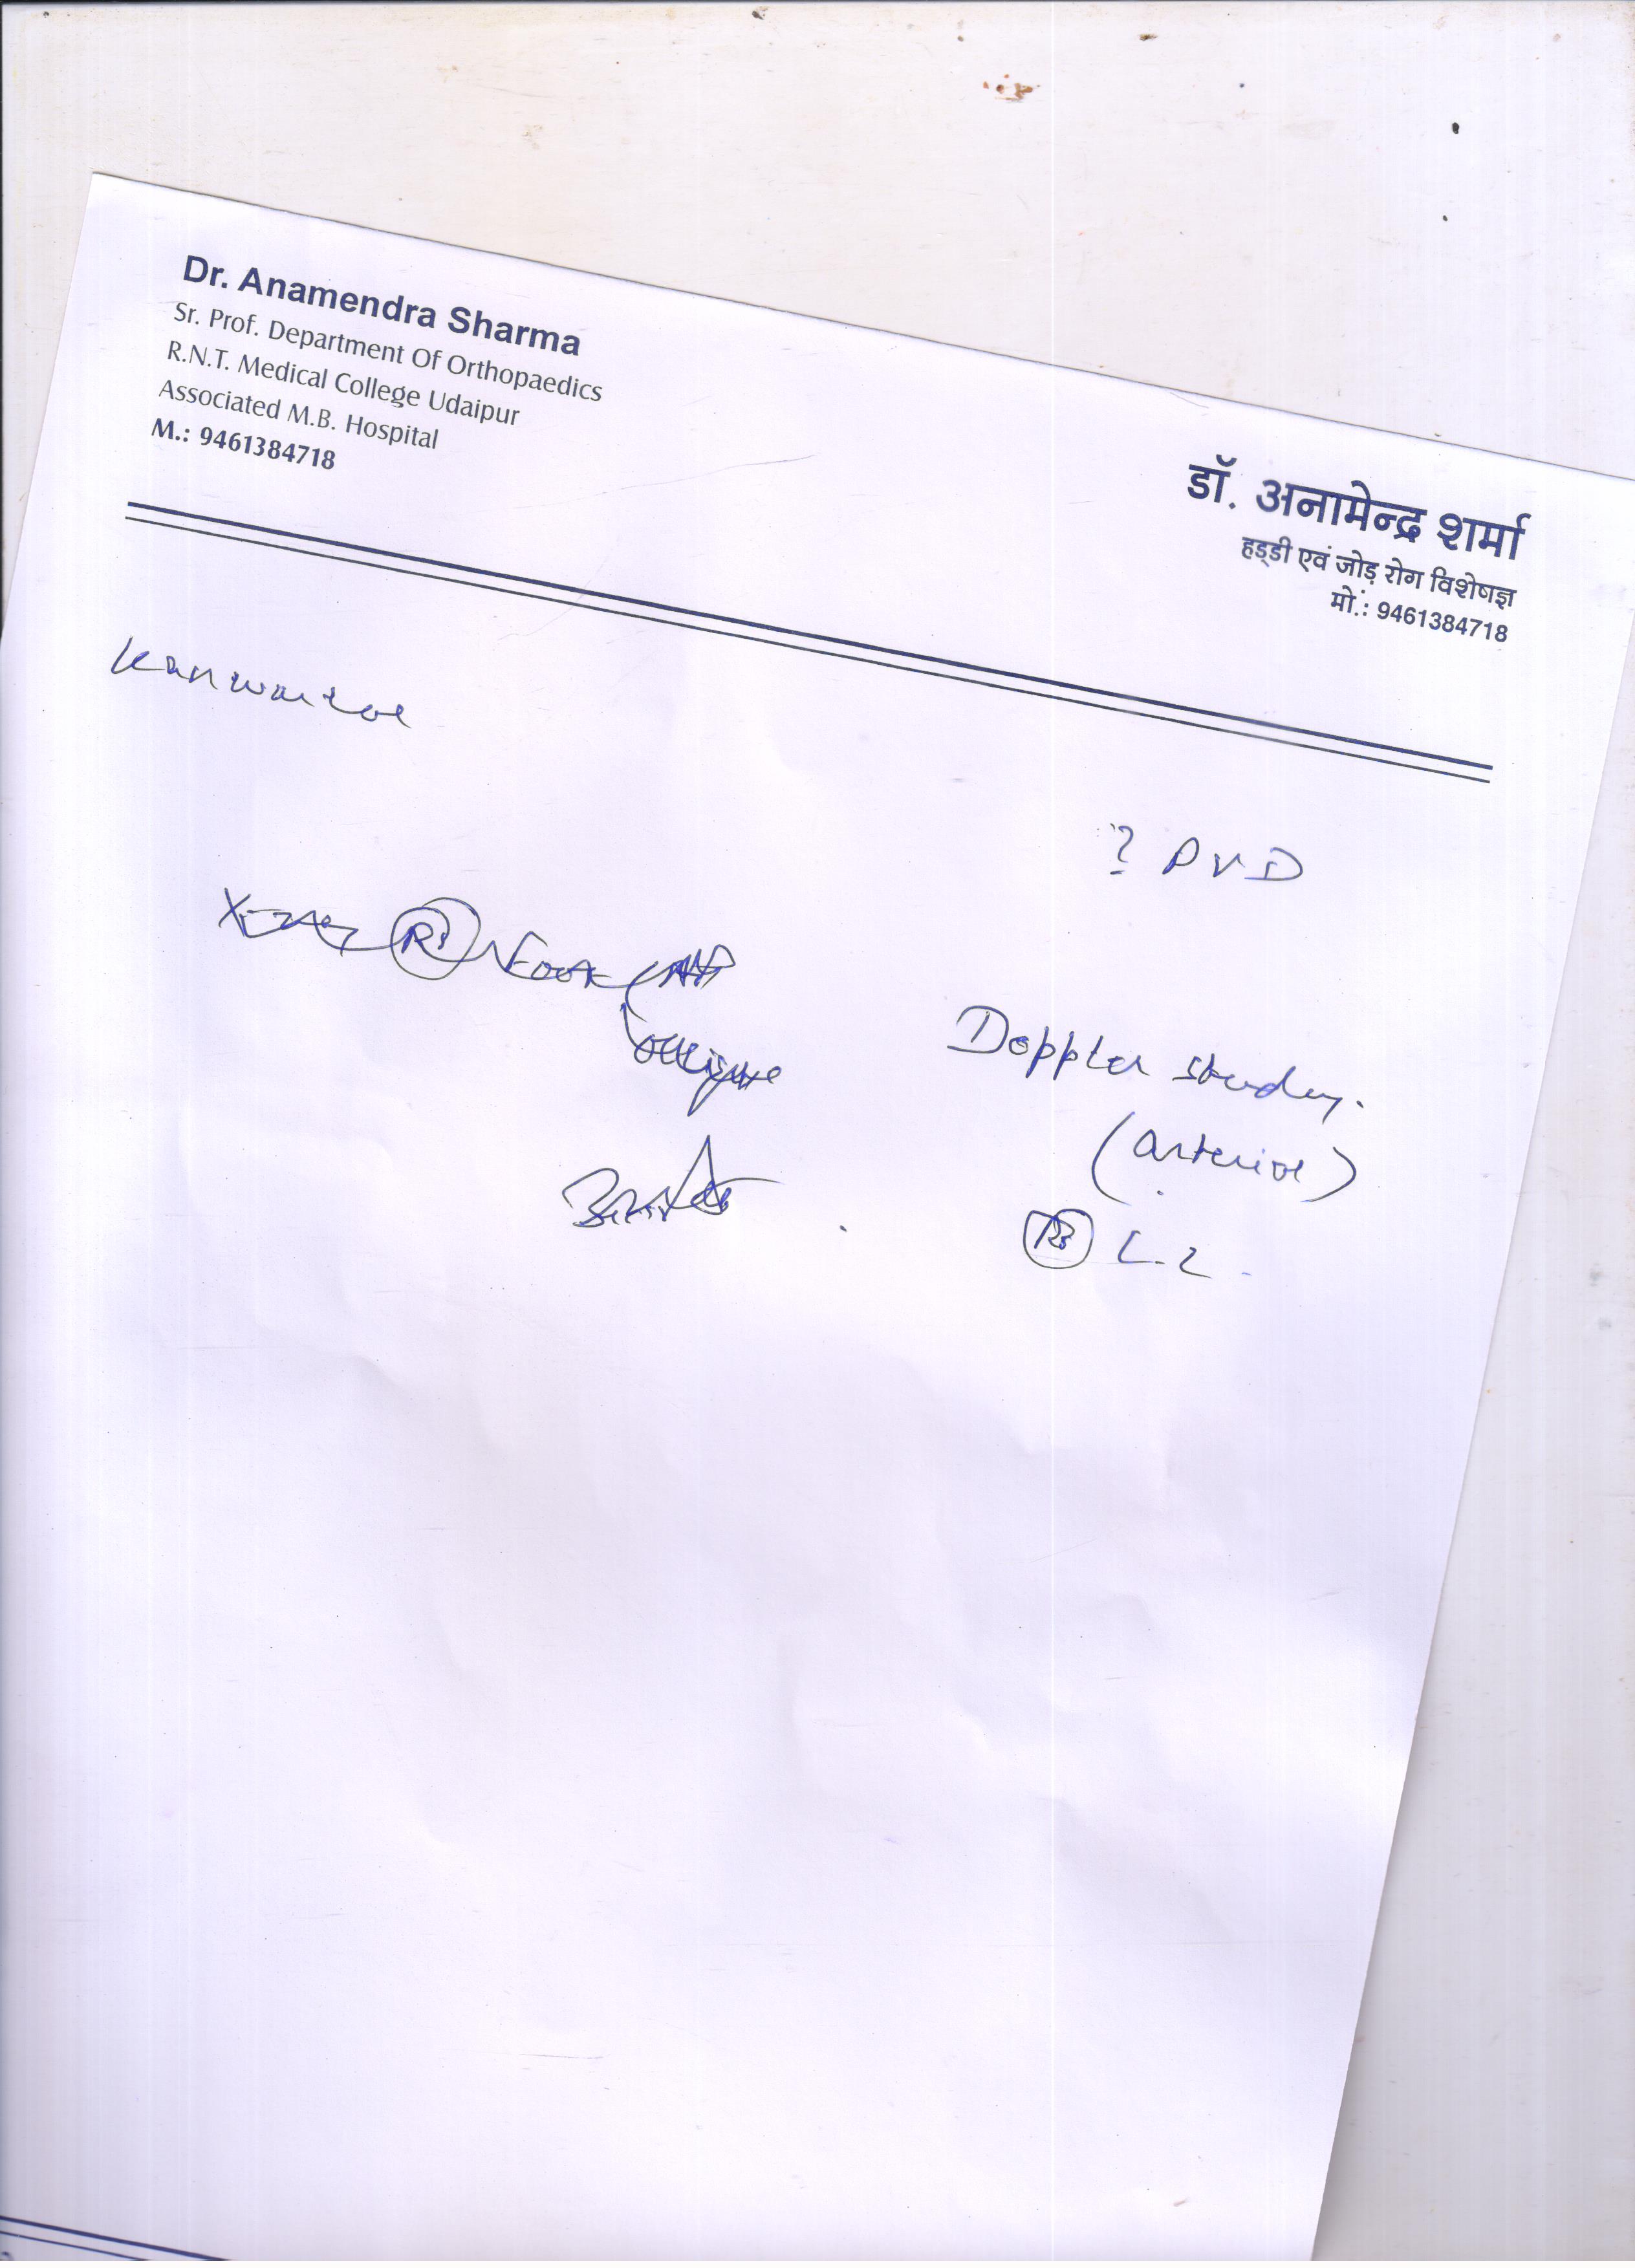 Dr. Anamendra Sharma
Sr. Prof. Department Of Orthopaedics
R.N.T. Medical College Udaipur
Associated M.B. Hospital
M.: 9461384718
डॉ. अनामेन्द्र शर्मा
हड्डी एवं जोड़ रोग विशेषज्ञ
मो.: 9461384718
? PVD
X-ray Rt Foot AP
oblique
Doppler study.
(arterial)
Rt L.L.